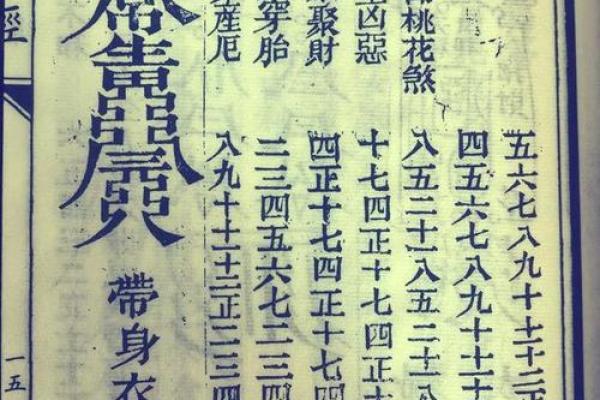 五六七八九十十一十二正
四五六七八九十十一十
桃花煞 八五二十一八五二十一八
凶惡 十七四正十七四正十
聚財 四正十七四正十七四
穿胎 二三四五六七二三四
産厄 八九十十一十二正二三四
帶身衣
經
一五